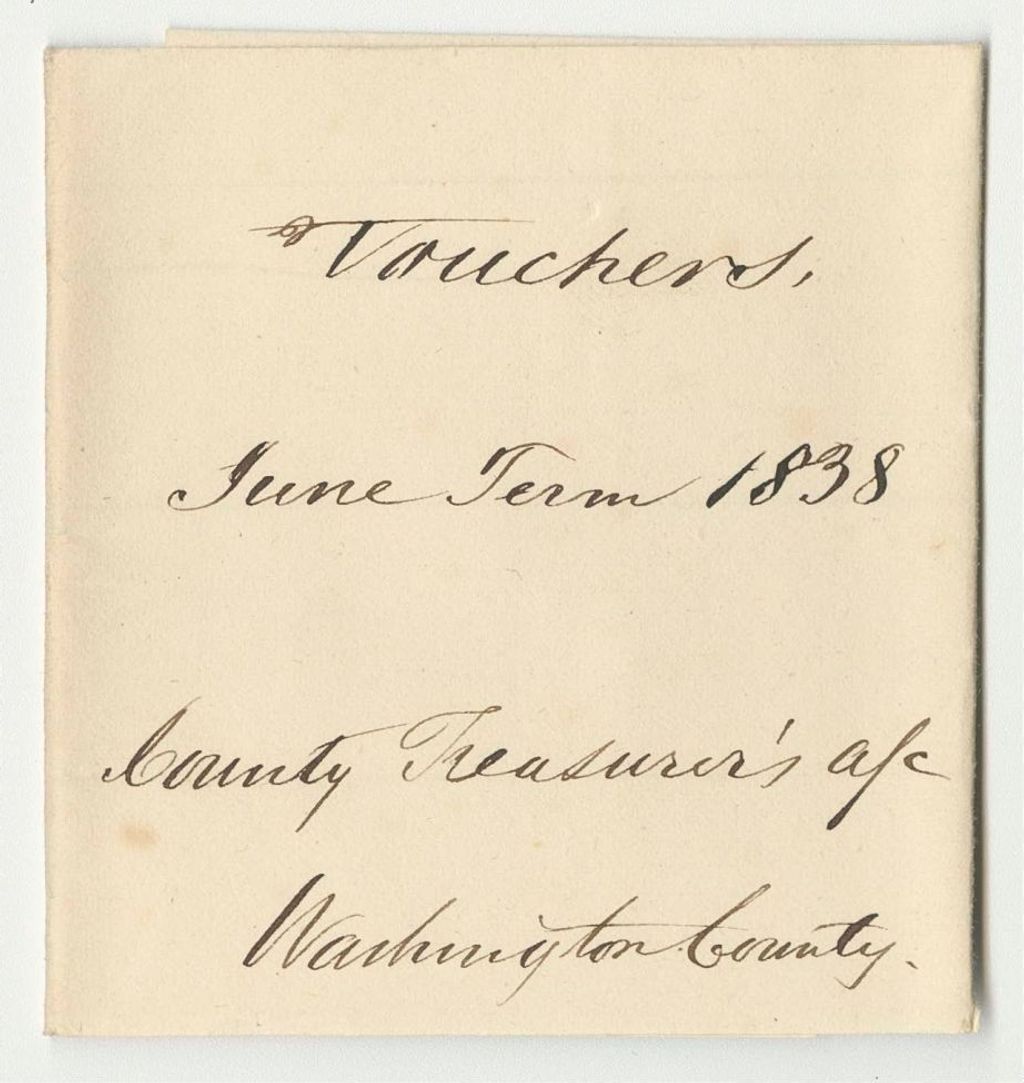 Vouchers.
June Term 1838
County Treasurer's a/c
Washington County.